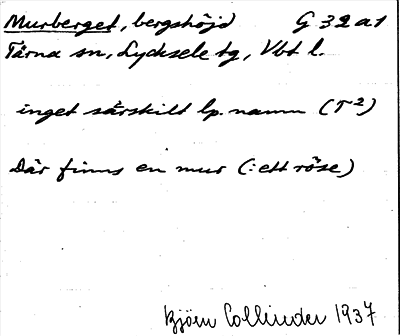 Murberget, bergshöjd G 32 a1
Tärna sn, Lycksele tg, Vbt l.
inget särskilt lp. namn (T²)
Där finns en mur (: ett röse)
Björn Collinder 1937